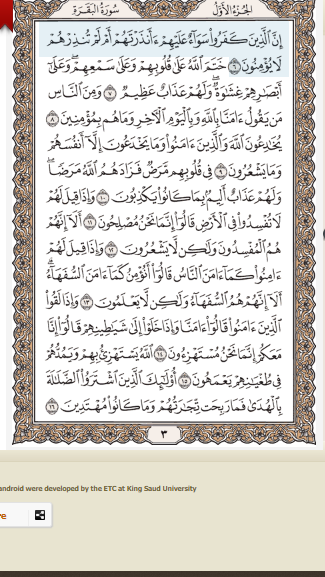 الجزء الأول سورة البقرة
إِنَّ ٱلَّذِينَ كَفَرُوا۟ سَوَآءٌ عَلَيْهِمْ ءَأَنذَرْتَهُمْ أَمْ لَمْ تُنذِرْهُمْ
لَا يُؤْمِنُونَ ٦ خَتَمَ ٱللَّهُ عَلَىٰ قُلُوبِهِمْ وَعَلَىٰ سَمْعِهِمْ ۖ وَعَلَىٰٓ
أَبْصَٰرِهِمْ غِشَٰوَةٌ ۖ وَلَهُمْ عَذَابٌ عَظِيمٌ ٧ وَمِنَ ٱلنَّاسِ
مَن يَقُولُ ءَامَنَّا بِٱللَّهِ وَبِٱلْيَوْمِ ٱلْـَٔاخِرِ وَمَا هُم بِمُؤْمِنِينَ ٨
يُخَٰدِعُونَ ٱللَّهَ وَٱلَّذِينَ ءَامَنُوا۟ وَمَا يَخْدَعُونَ إِلَّآ أَنفُسَهُمْ
وَمَا يَشْعُرُونَ ٩ فِى قُلُوبِهِم مَّرَضٌ فَزَادَهُمُ ٱللَّهُ مَرَضًا ۖ
وَلَهُمْ عَذَابٌ أَلِيمٌۢ بِمَا كَانُوا۟ يَكْذِبُونَ ١٠ وَإِذَا قِيلَ لَهُمْ
لَا تُفْسِدُوا۟ فِى ٱلْأَرْضِ قَالُوٓا۟ إِنَّمَا نَحْنُ مُصْلِحُونَ ١١ أَلَآ إِنَّهُمْ
هُمُ ٱلْمُفْسِدُونَ وَلَٰكِن لَّا يَشْعُرُونَ ١٢ وَإِذَا قِيلَ لَهُمْ
ءَامِنُوا۟ كَمَآ ءَامَنَ ٱلنَّاسُ قَالُوٓا۟ أَنُؤْمِنُ كَمَآ ءَامَنَ ٱلسُّفَهَآءُ ۗ
أَلَآ إِنَّهُمْ هُمُ ٱلسُّفَهَآءُ وَلَٰكِن لَّا يَعْلَمُونَ ١٣ وَإِذَا لَقُوا۟
ٱلَّذِينَ ءَامَنُوا۟ قَالُوٓا۟ ءَامَنَّا وَإِذَا خَلَوْا۟ إِلَىٰ شَيَٰطِينِهِمْ قَالُوٓا۟ إِنَّا
مَعَكُمْ إِنَّمَا نَحْنُ مُسْتَهْزِءُونَ ١٤ ٱللَّهُ يَسْتَهْزِئُ بِهِمْ وَيَمُدُّهُمْ
فِى طُغْيَٰنِهِمْ يَعْمَهُونَ ١٥ أُو۟لَٰٓئِكَ ٱلَّذِينَ ٱشْتَرَوُا۟ ٱلضَّلَٰلَةَ
بِٱلْهُدَىٰ فَمَا رَبِحَت تِّجَٰرَتُهُمْ وَمَا كَانُوا۟ مُهْتَدِينَ ١٦
٣
android were developed by the ETC at King Saud University